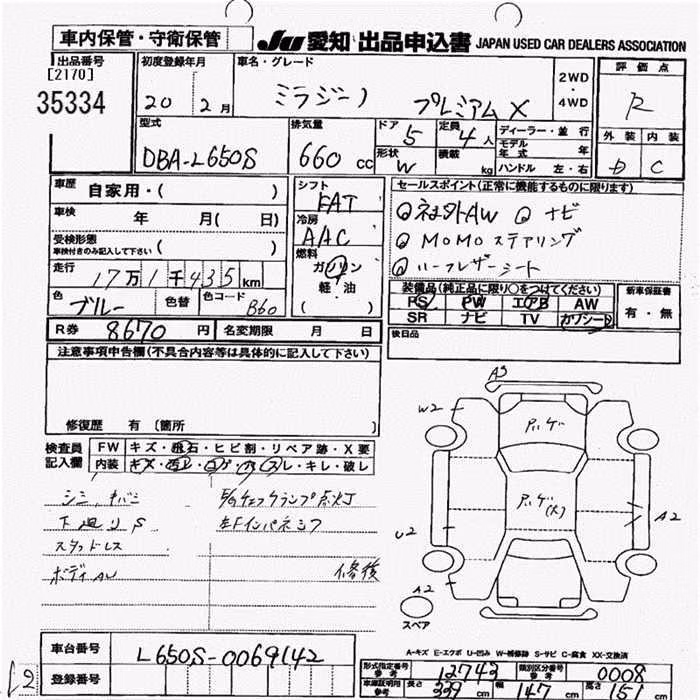 車内保管・守衛保管
JU 愛知 出品申込書 JAPAN USED CAR DEALERS ASSOCIATION
出品番号
[2170]
35334
初度登録年月
20 2月
車名・グレード
ミラジーノ プレミアムX
2WD
・
4WD
評価点
R
外装 内装
D C
型式
DBA-L650S
排気量
660 cc
ドア 5
定員 4人
形状 W
積載 kg
ディーラー・並行
モデル年式 年
ハンドル 左・右
車歴 自家用・( )
車検 年 月( 日)
受検形態
車検付きのみ記入して下さい ( )
走行 17万1千435km
色 ブルー 色替 色コード B60
シフト
FAT
冷房
AAC
燃料
ガソリン
軽・油
( )
セールスポイント(正常に機能するものに限ります)
ナビ
MOMOステアリング
ハーフレザーシート
装備品(純正品に限り○をつけてください)
PS PW エアB AW
SR ナビ TV カワシート
新車保証書
有・無
後日品
R券 8670円 名変期限 月 日
注意事項申告欄(不具合内容等は具体的に記入して下さい)
修復歴 有〔箇所 〕
検査員
記入欄
FW キズ・飛石・ヒビ割・リペア跡・X要
内装 キズ・汚レ・コゲ・穴・スレ・キレ・破レ
下廻りS
スタッドレス
ボディAW
チェックランプ点灯
修復
A3
W2
U2
A2
A2
スペア
A-キズ E-エクボ U-凹み W-補修跡 S-サビ C-腐食 XX-交換済
車台番号 L650S-0069142
登録番号
形式指定番号
参考
12743
類別区分番号
参考
0008
車庫証明用
参考
長さ 339cm 幅 147cm 高さ 151cm